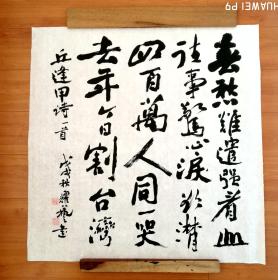 春愁難遣強看山
往事驚心淚欲潸
四百萬人同一哭
去年今日割台灣
丘逢甲詩一首
戊戌秋
HUAWEI P9